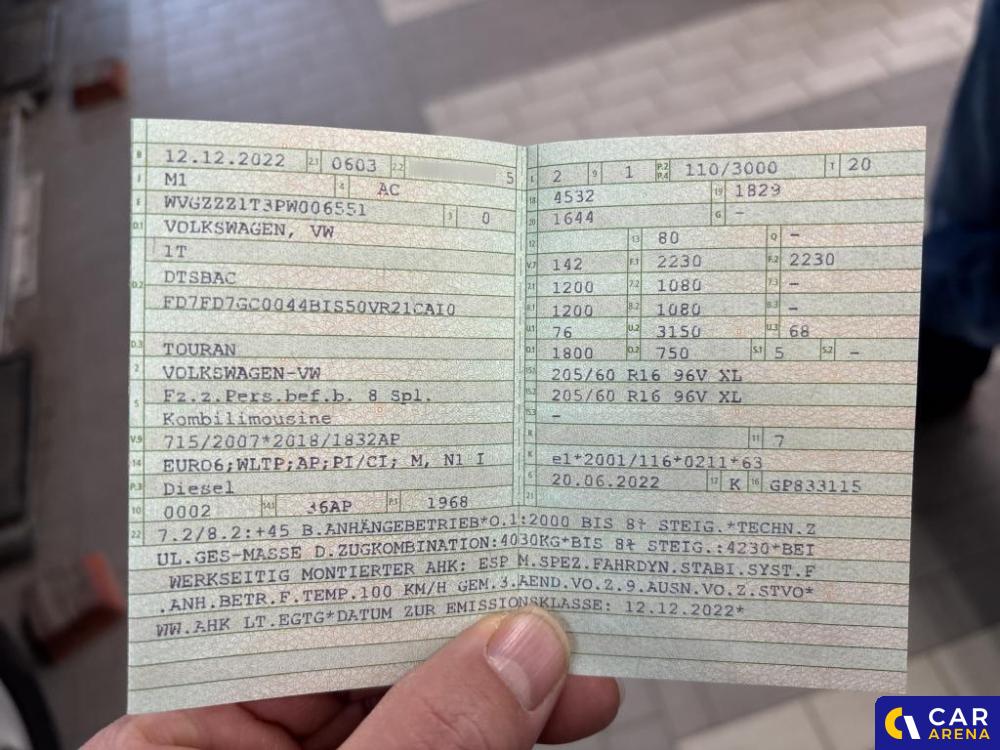 B 12.12.2022 2.1 0603 2.2 5
J M1 4 AC
E WVGZZZ1T3PW006551 3 0
D.1 VOLKSWAGEN, VW
1T
D.2 DTSBAC
FD7FD7GC0044BIS50VR21CAI0
D.3 TOURAN
2 VOLKSWAGEN-VW
5 Fz.z.Pers.bef.b. 8 Spl.
Kombilimousine
V.9 715/2007*2018/1832AP
14 EURO6;WLTP;AP;PI/CI; M, N1 I
P.3 Diesel
10 0002 14.1 36AP P.1 1968
L 2 9 1 P.2 P.4 110/3000 T 20
18 4532 19 1829
20 1644 G -
12 13 80 Q -
V.7 142 F.1 2230 F.2 2230
7.1 1200 7.2 1080 7.3 -
8.1 1200 8.2 1080 8.3 -
U.1 76 U.2 3150 U.3 68
O.1 1800 O.2 750 S.1 5 S.2 -
15.1 205/60 R16 96V XL
15.2 205/60 R16 96V XL
15.3 -
R 11 7
K e1*2001/116*0211*63
6 20.06.2022 17 K 16 GP833115
21
22 7.2/8.2:+45 B.ANHÄNGEBETRIEB*O.1:2000 BIS 8% STEIG.*TECHN.Z
UL.GES-MASSE D.ZUGKOMBINATION:4030KG*BIS 8% STEIG.:4230*BEI
WERKSEITIG MONTIERTER AHK: ESP M.SPEZ.FAHRDYN.STABI.SYST.F
.ANH.BETR.F.TEMP.100 KM/H GEM.3.AEND.VO.Z.9.AUSN.VO.Z.STVO*
WW.AHK LT.EGTG*DATUM ZUR EMISSIONSKLASSE: 12.12.2022*
CAR
ARENA